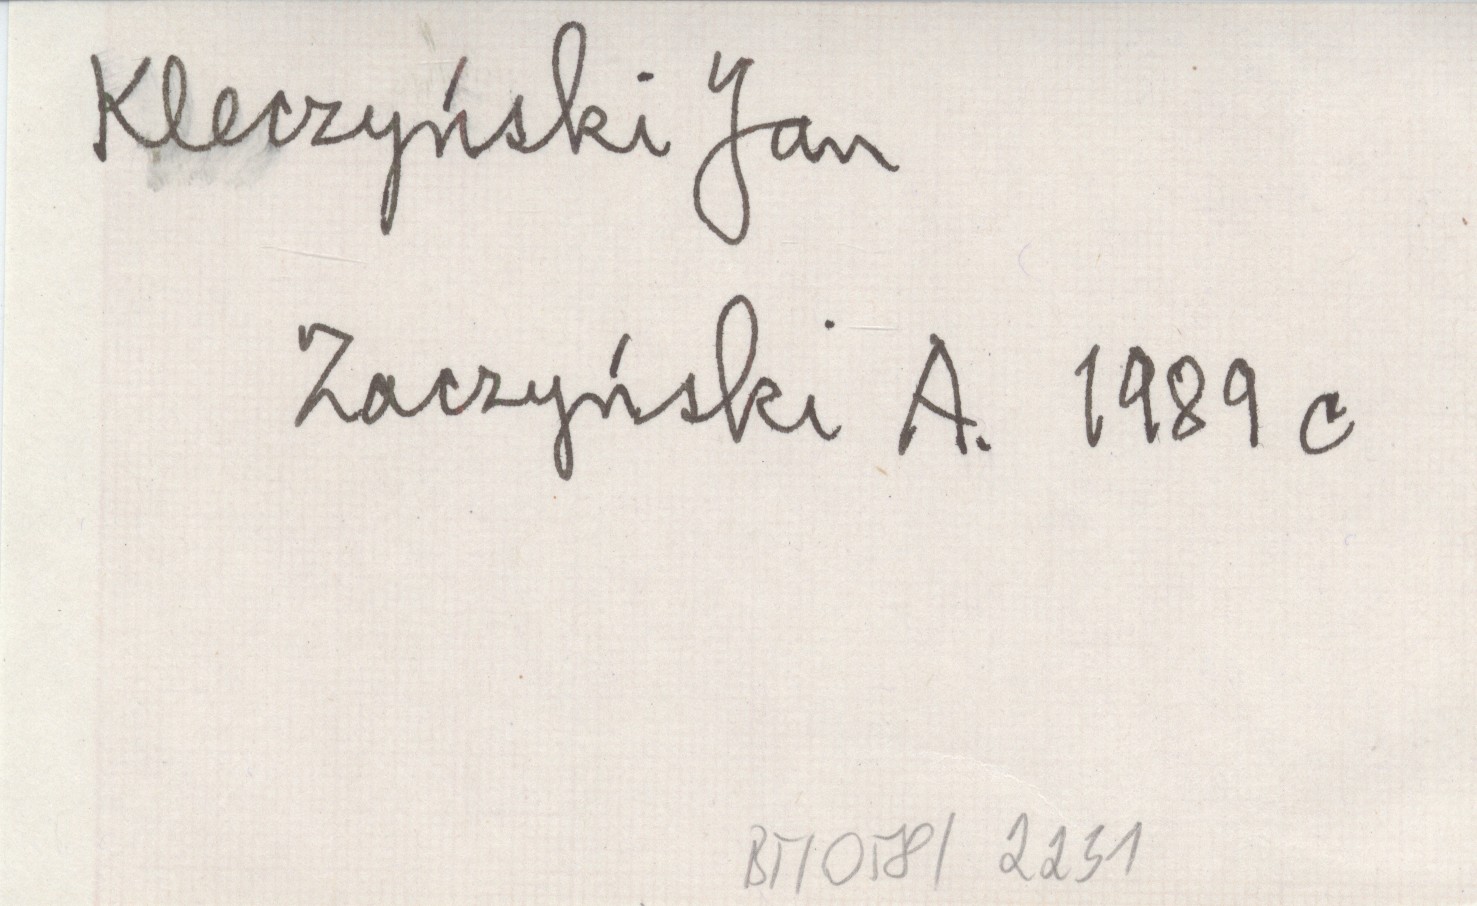 Kleczyński Jan
Zaczyński A. 1989 c
BT/OT8/ 2231